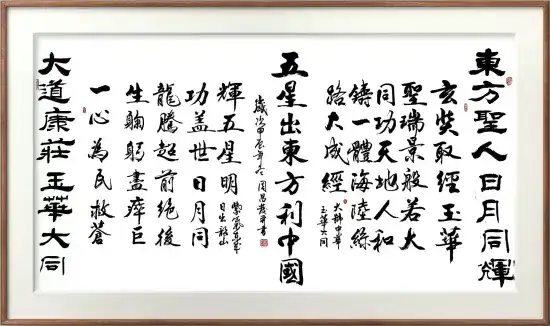 東方聖人日月同輝
玄奘取經玉華
聖瑞景般若大
同功天地人和
鑄一體海陸絲
路大成經
玉華大同
五星出東方利中國
歲次甲辰年冬
大道康莊玉華大同
一心為民救蒼
生鞠躬盡瘁巨
龍騰超前絕後
功蓋世日月同
輝五星明
紫氣東來